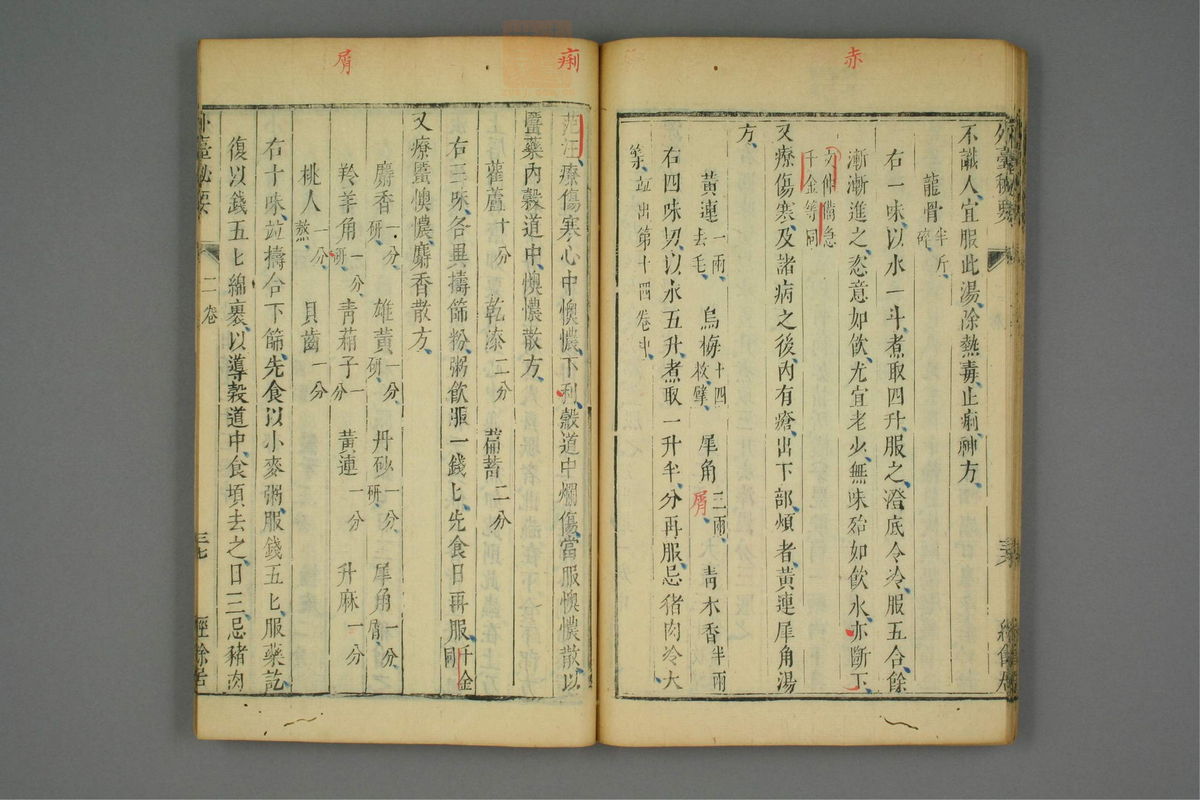 赤
外臺秘要
經餘居
不識人宜服此湯除熱毒止痢神方
龍骨半斤碎
右一味以水一斗煮取四升服之澄底令冷服五合餘
漸漸進之恣意如飲尤宜老少無味殆如飲水亦斷下
千金等同
又療傷寒及諸病之後內有瘡出下部煩者黃連犀角湯
方
黃連一兩去毛 烏梅十四枚擘 犀角三兩屑 青木香半兩
右四味切以水五升煮取一升半分再服忌豬肉冷大
並出第十四卷中
痢
屑
范汪療傷寒心中懊憹下利穀道中爛傷當服懊憹散以
䘌藥內穀道中懊憹散方
雚蘆十分 乾漆二分 萹蓄二分
右三味各異擣篩粉粥飲服一錢匕先食日再服千金同
又療䘌懊憹麝香散方
麝香一分研 雄黃一分研 丹砂一分研 犀角一分屑
羚羊角一分研 青葙子一分 黃連一分 升麻一分
桃人一分熬 貝齒一分
右十味並擣合下篩先食以小麥粥服錢五匕服藥訖
復以錢五匕綿裹以導穀道中食頃去之日三忌豬肉
外臺秘要
二卷
三七
經餘居